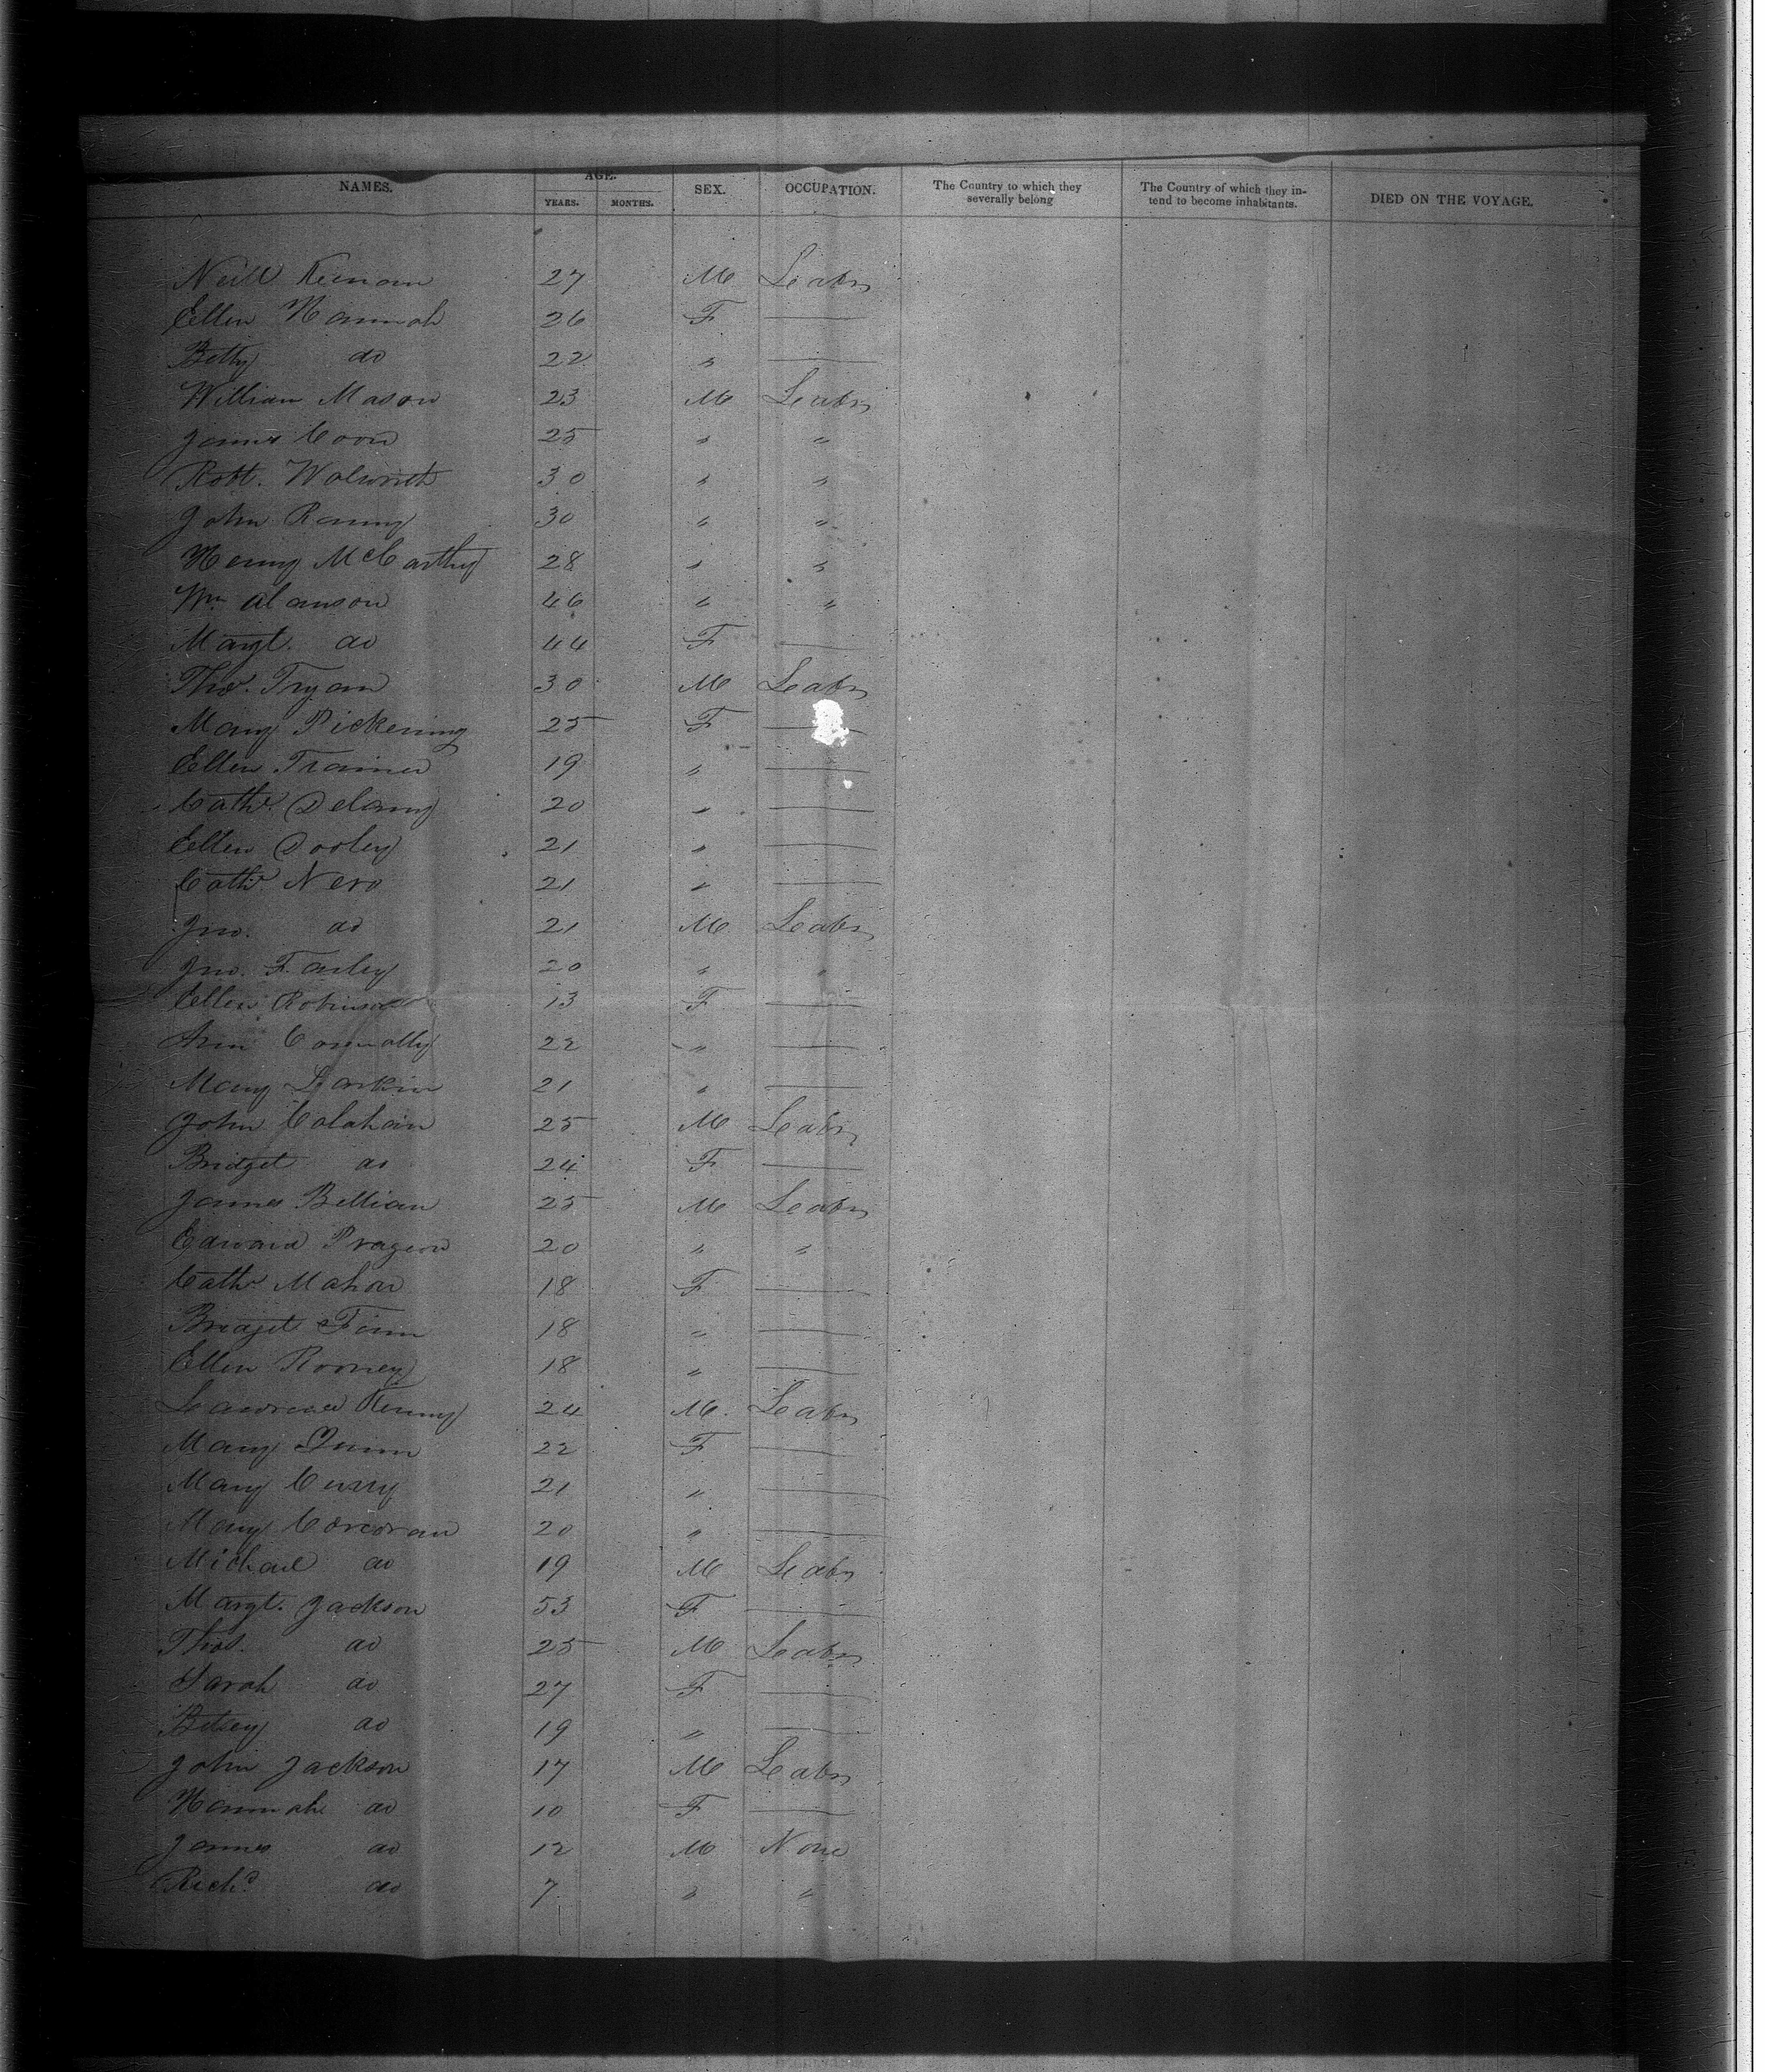 NAMES. AGE. YEARS. MONTHS. SEX. OCCUPATION. The Country to which they severally belong The Country of which they intend to become inhabitants. DIED ON THE VOYAGE.
Neill Keenan 27 M Labr
Ellen Hannah 26 F —
Betty do 22 " —
William Mason 23 M Labr
James Coon 25 " "
Robt. 30 " "
John Ranny 30 " "
Henry McCarthy 28 " "
Wm Alanson 46 " "
Margt. do 44 F —
Thos. Tryan 30 M Labr
Mary Pickering 25 F —
Ellen Trainer 19 " —
Cathe. Delanny 20 " —
Ellen Dooley 21 " —
Cathe Nero 21 " —
Jno. do 21 M Labr
Jno. Farley 20 " "
Ellen Robinson 13 F —
Ann Connolly 22 " —
Mary Larkin 21 " —
John Calahan 25 M Labr
Bridget do 24 F —
James Bellian 25 M Labr
Edward 20 " "
Cathe Mahon 18 F —
Bridget Finn 18 " —
Ellen Rooney 18 " —
Lawrence Kenny 24 M. Labr
Mary Quinn 22 F —
Mary Curry 21 " —
Mary Corcoran 20 " —
Michael do 19 M Labr
Margt. Jackson 53 F —
Thos. do 25 M Labr
Sarah do 27 F —
Betsey do 19 " —
John Jackson 17 M Labr
Hannah do 10 F —
James do 12 M None
Richd do 7 " "